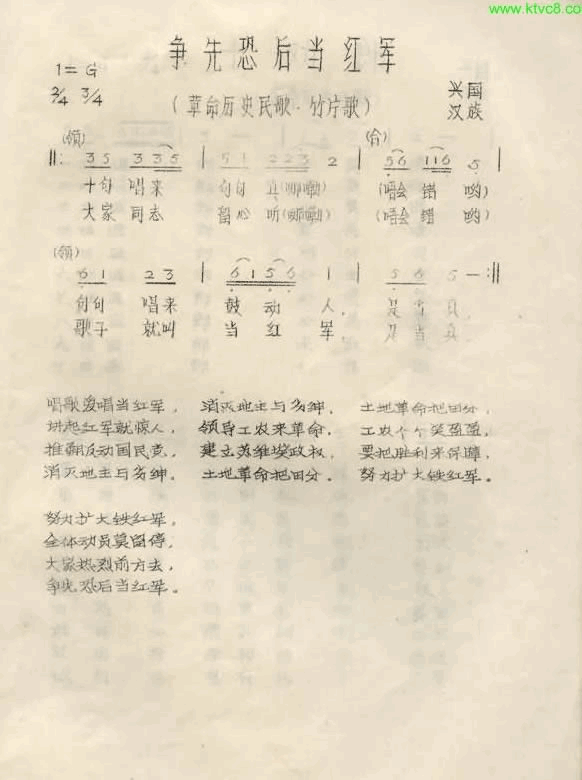 www.ktvc8.co
争先恐后当红军
1=G
2/4 3/4
(革命历史民歌·竹片歌)
兴国
汉族
(领) (合)
‖: 35 335 | 51 223 2 | 56 116 5 |
十句 唱来 句句 真(哪嘞) (唔会 错 哟)
大家 同志 留心 听(哪嘞) (唔会 错 哟)
(领)
61 23 | 6156 1 | 5 6 5 — :‖
句句 唱来 鼓 动 人, 是 当 真
歌子 就叫 当 红 军, 是 当 真
唱歌爱唱当红军,
讲起红军就惊人,
推翻反动国民党,
消灭地主与劣绅。
消灭地主与劣绅,
领导工农来革命,
建立苏维埃政权,
土地革命把田分。
土地革命把田分,
工农个个笑盈盈,
要把胜利来保障,
努力扩大铁红军。
努力扩大铁红军,
全体动员莫留停,
大家热烈前方去,
争先恐后当红军。